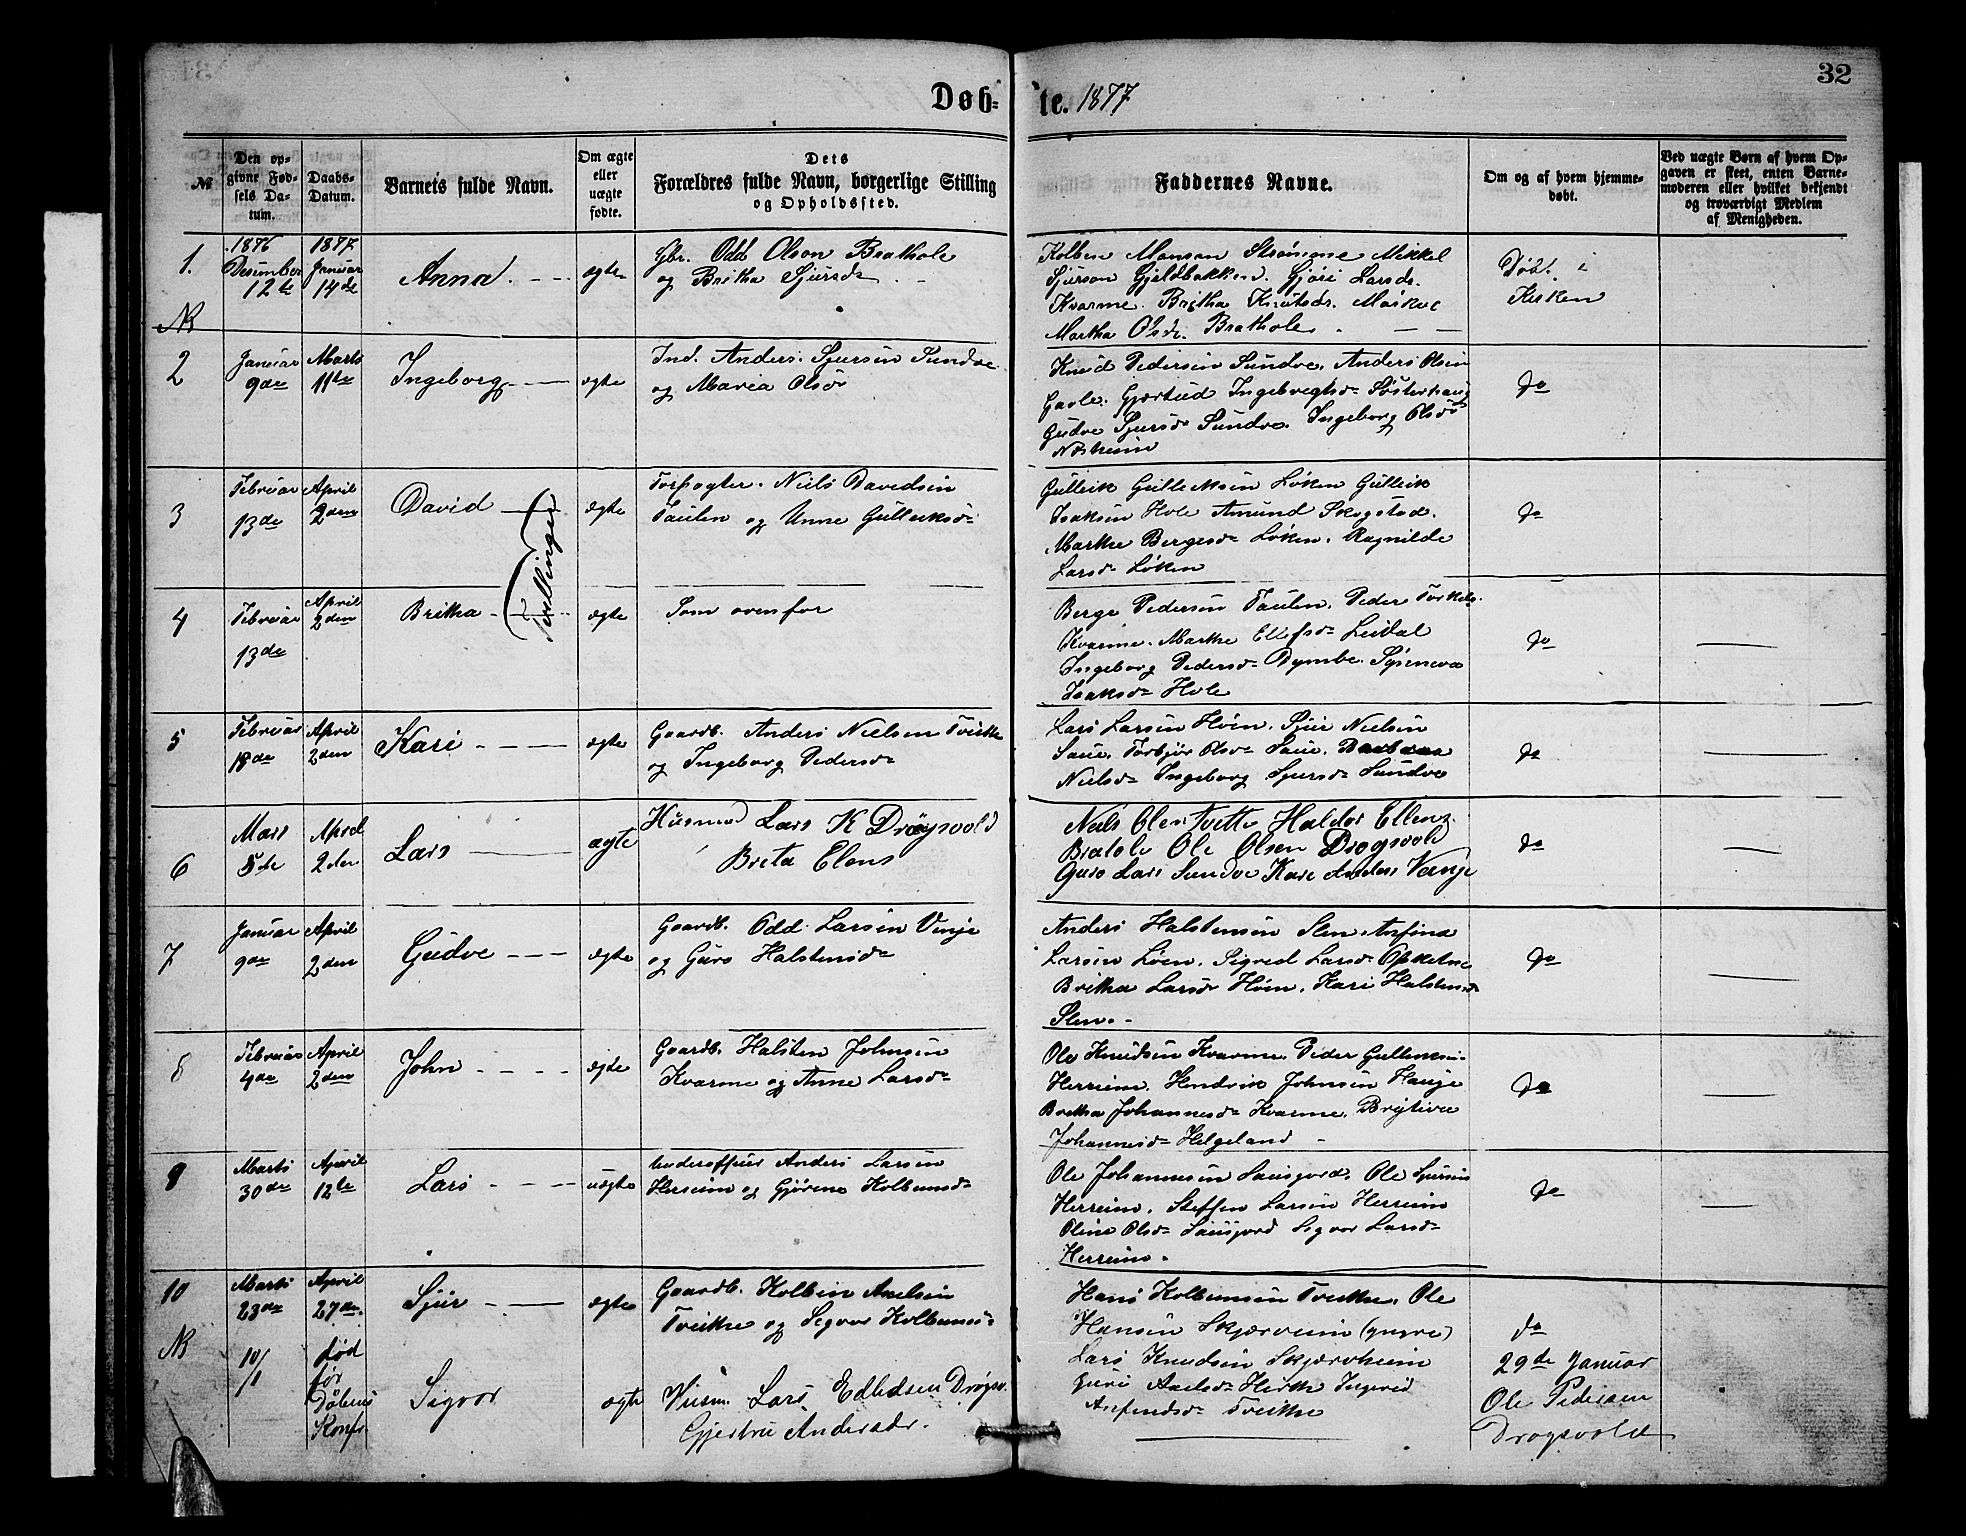 32
Døb-te. 1877
№
Den opgivne Fødsels Datum.
Daabs-Datum.
Barnets fulde Navn.
Om ægte eller uægte fødte.
Dets Forældres fulde Navn, borgerlige Stilling og Opholdssted.
Faddernes Navne.
Om og af hvem hjemmedøbt.
Ved uægte Børn af hvem Opgaven er skeet, enten Barnemoderen eller hvilket bekjendt og troværdigt Medlem af Menigheden.
1.
1876
Desember
12te
1877
Januar
14de
Anna
ægte
Gbr. Odd Olson Brathole
og Britha Sjursdr
Kolben Monsen Strønine Mikkel
Sjurson Gjeldbakken. Gjøri Larsdr.
Kvarme. Britha Knutsdr.
Martha Olsdr. Brathole
Døbt i
Kirken
NB
2
Januar
9de
Marts
11te
Ingeborg
ægte
Ind. Anders Sjursen Sundve
og Maria Olsdr
Knud Pedersen Sundve. Anders Olsen
Gavle. Gjertrud Ingebregtsdr
Gudve Sjursdr Sundve. Ingeborg Olsdr
Nøsheim
do
3
Februar
13de
April
2den
David
Tvillinger
ægte
Forpagter. Niels Davedsen
Saulen og Unne Gulleiksdr
Gulleik Gulleiksen Løken Gulleik
Isaksen Hole Amund Skogstad.
Marthe Bergesdr Løken. Ragnilde
Larsdr Løken
do
4
Februar
13de
April
2den
Britha
ægte
Som ovenfor
Berge Pedersen Saulen. Peder Torkels.
Kvarme. Marthe Ellefsdr Leidal
Ingeborg Pedersdr Dymbe. Syneva
Isaksdr Hole
do
5
Februar
18de
April
2den
Kari
ægte
Gaardb. Anders Nielsen Tveithe
og Ingeborg Pedersdr
Lars Larsen Høin. Sjur Nielsen
Saue. Torbjør Olsdr Saue. Barbraa
Nielsdr Ingeborg Sjursdr Sundve
do
6
Mars
5te
April
2den
Lars
ægte
Husmd Lars K Drøgsvold
Breta Elens
Niels Olsen Tvette Haldor Ellenz
Bratole Ole Olsen Drogsvold
Guro Lars Sundve Kari Anders Venje
do
7
Januar
9de
April
2den
Gudve
ægte
Gaardb. Odd Larsen Vinje
og Guro Halstensdr
Anders Halstensen Slen. Anfind
Larsen Løen. Sigved Larsdr Opheim
Britha Larsdr Høin. Kari Halstensdr
Slen.
do
8
Februar
4de
April
2den
John
ægte
Gaardb. Halsten Johnsen
Kvarme og Anne Larsdr
Ole Knudsen Kvarme. Peder Gulleiksen
Herreim. Hendrik Johnsen Hauge
Britha Johannesdr Kvarme. Brytive
Johannesdr Helgeland
do
9
Marts
30de
April
12te
Lars
uægte
Underofficer Anders Larsen
Herreim og Gjørene Kolbensdr
Ole Johannesen Sausjord. Ole Sjursen
Herreim. Steffen Larsen Herreim
Oline Olsdr Sausjord Sigvor Larsdr
Herreim.
do
10
Marts
23de
April
27de.
Sjur
ægte
Gaardb. Kolben Axelsen
Tveithe og Segvor Kolbens-
Hans Kolbensen Tveithe. Ole
Hansen Skjerveim (yngre)
Lars Knudsen Skjerveim
Guri Axelsdr Hirth Ingerid
Anfendsdr Tveithe
do
NB
10/1
død
før
Daabens
Konfr.
Sigvor
ægte
Husm. Lars Edledsen Drøgsv.
Gjertru Andersdr.
29de Januar
Ole Pedersen
Drogsvold